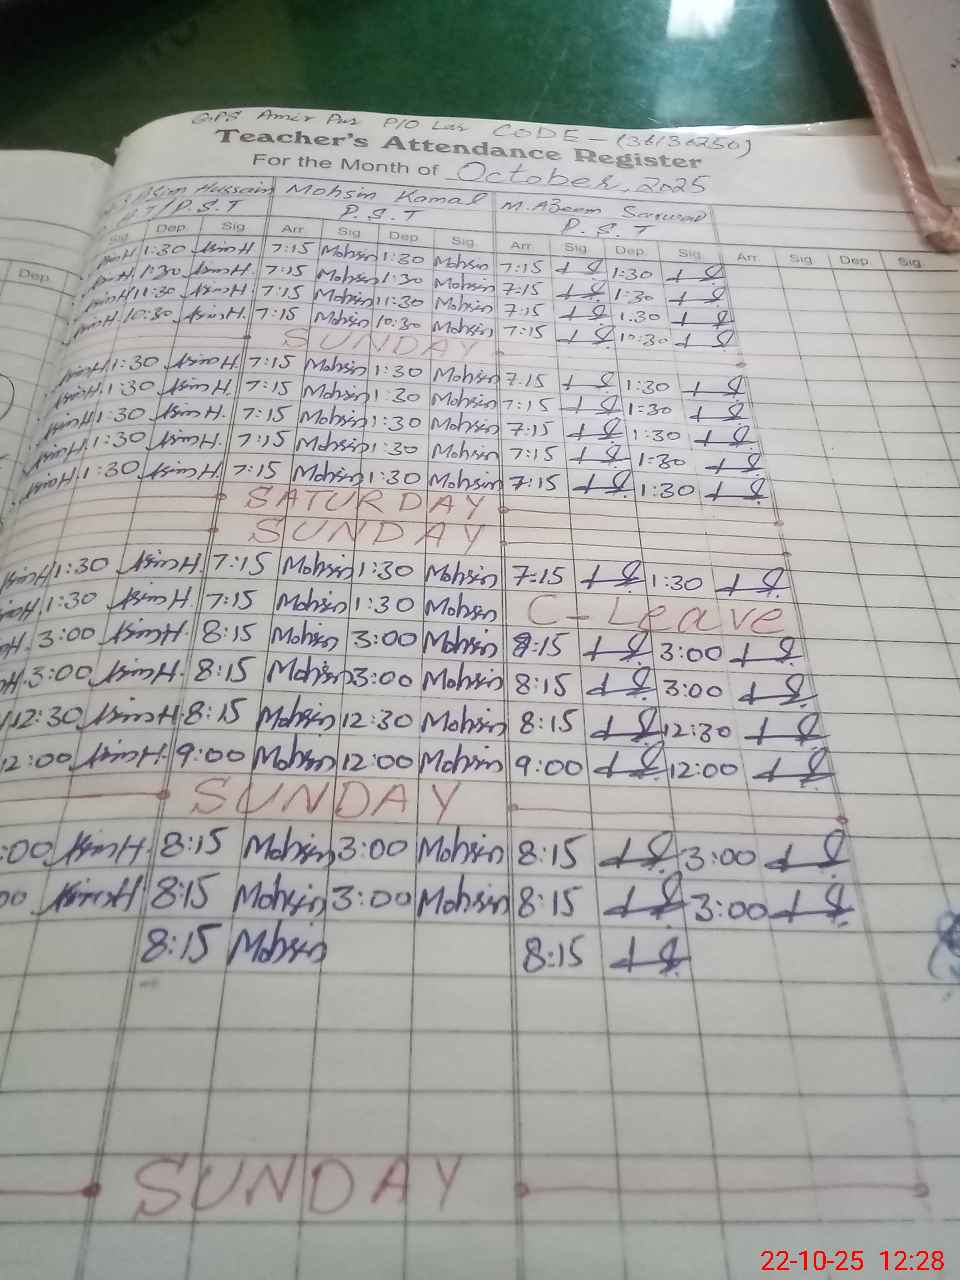 G.P.S Amir Pur P/O Lar CODE - (36136250)
Teacher's Attendance Register
For the Month of October, 2025
Asim Hussain Mohsin Kamal M. Azeem Sarwar
P.S.T P.S.T P.S.T
Dep. Sig. Dep. Sig. Arr. Sig. Dep. Sig. Arr. Sig. Dep. Sig. Arr. Sig. Dep. Sig.
1:30 AsimH. 7:15 Mohsin 1:30 Mohsin 7:15 1:30
1:30 AsimH. 7:15 Mohsin 1:30 Mohsin 7:15 1:30
11:30 AsimH. 7:15 Mohsin 11:30 Mohsin 7:15 1:30
10:30 AsimH. 7:15 Mohsin 10:30 Mohsin 7:15 10:30
SUNDAY
1:30 AsimH. 7:15 Mohsin 1:30 Mohsin 7:15 1:30
1:30 AsimH. 7:15 Mohsin 1:30 Mohsin 7:15 1:30
1:30 AsimH. 7:15 Mohsin 1:30 Mohsin 7:15 1:30
1:30 AsimH. 7:15 Mohsin 1:30 Mohsin 7:15 1:30
1:30 AsimH. 7:15 Mohsin 1:30 Mohsin 7:15 1:30
SATURDAY
SUNDAY
1:30 AsimH. 7:15 Mohsin 1:30 Mohsin 7:15 1:30
1:30 AsimH. 7:15 Mohsin 1:30 Mohsin C-Leave
3:00 AsimH. 8:15 Mohsin 3:00 Mohsin 8:15 3:00
3:00 AsimH. 8:15 Mohsin 3:00 Mohsin 8:15 3:00
12:30 AsimH. 8:15 Mohsin 12:30 Mohsin 8:15 12:30
12:00 AsimH. 9:00 Mohsin 12:00 Mohsin 9:00 12:00
SUNDAY
:00 AsimH. 8:15 Mohsin 3:00 Mohsin 8:15 3:00
00 AsimH 8:15 Mohsin 3:00 Mohsin 8:15 3:00
8:15 Mohsin 8:15
SUNDAY
22-10-25 12:28